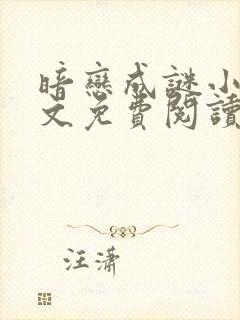 暗戀成謎小
文免費閱讀
汪瀟